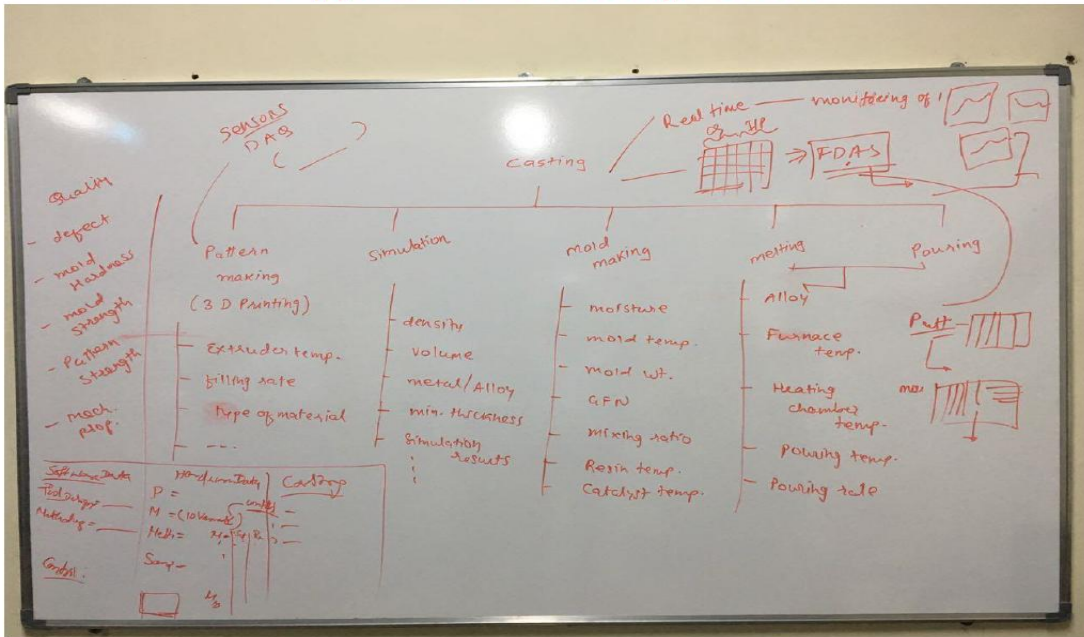 Sensors
DAQ
Real time — monitoring of
Casting
⇒ FDAS
Quality
- defect
- mold
Hardness
- mold
Strength
- Pattern
Strength
- mech.
prop.
Pattern
making
(3 D Printing)
- Extruder temp.
- filling rate
- type of material
- ---
Simulation
- density
- volume
- metal/Alloy
- min. thickness
- Simulation
results
mold
making
- moisture
- mold temp.
- mold wt.
- GFN
- mixing ratio
- Resin temp.
- Catalyst temp.
melting
Pouring
- Alloy
- Furnace
temp.
- Heating
chamber
temp.
- Pouring temp.
- Pouring rate
Software Data
Hardware Data
Casting
P =
M =